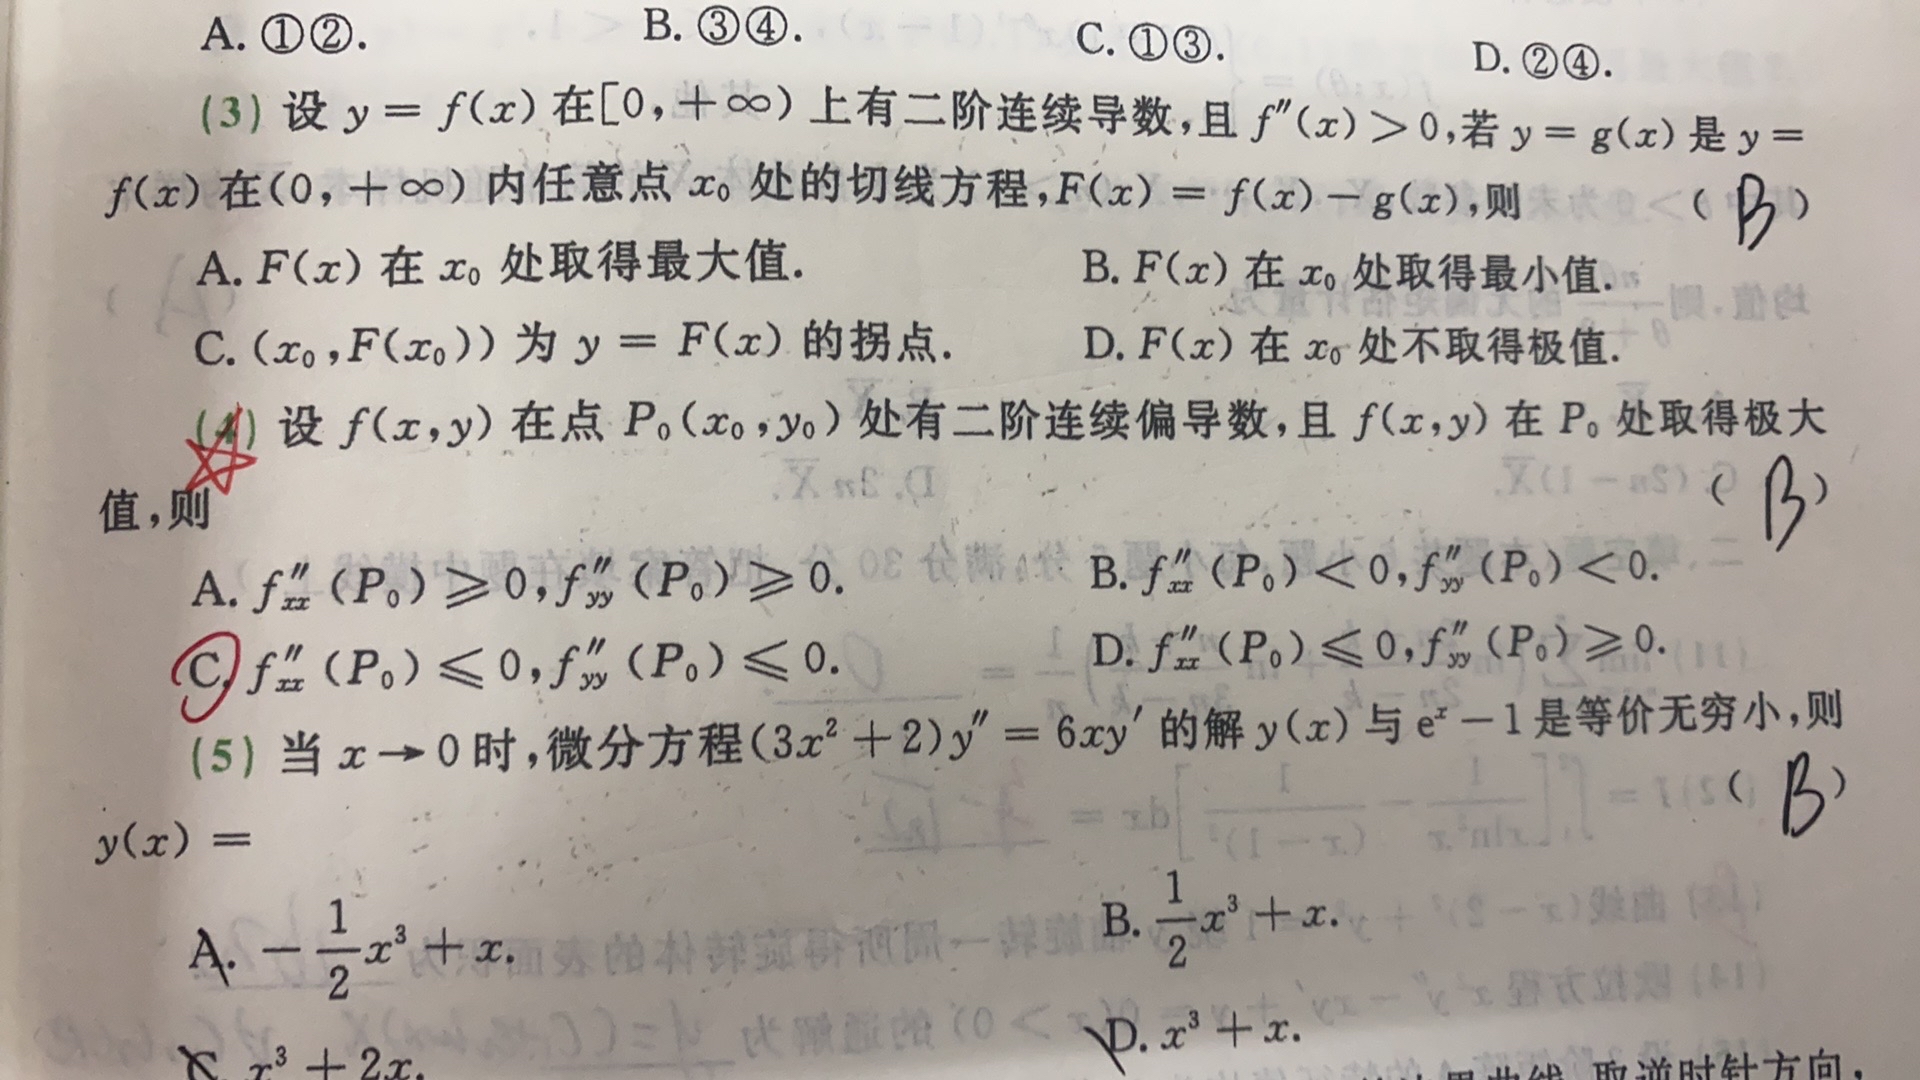 A. ①②. B. ③④. C. ①③. D. ②④.
(3) 设 y = f(x) 在[0,+∞) 上有二阶连续导数,且 f″(x) > 0,若 y = g(x) 是 y =
f(x) 在(0,+∞) 内任意点 x₀ 处的切线方程,F(x) = f(x) − g(x),则 ( B )
A. F(x) 在 x₀ 处取得最大值. B. F(x) 在 x₀ 处取得最小值.
C. (x₀,F(x₀)) 为 y = F(x) 的拐点. D. F(x) 在 x₀ 处不取得极值.
(4) 设 f(x,y) 在点 P₀(x₀,y₀) 处有二阶连续偏导数,且 f(x,y) 在 P₀ 处取得极大
值,则 ( B )
A. f″xx(P₀) ⩾ 0,f″yy(P₀) ⩾ 0. B. f″xx(P₀) < 0,f″yy(P₀) < 0.
C. f″xx(P₀) ⩽ 0,f″yy(P₀) ⩽ 0. D. f″xx(P₀) ⩽ 0,f″yy(P₀) ⩾ 0.
(5) 当 x → 0 时,微分方程(3x² + 2)y″ = 6xy′ 的解 y(x) 与 eˣ − 1 是等价无穷小,则
y(x) = ( B )
A. −1/2x³ + x. B. 1/2x³ + x.
C. x³ + 2x. D. x³ + x.
取逆时针方向,